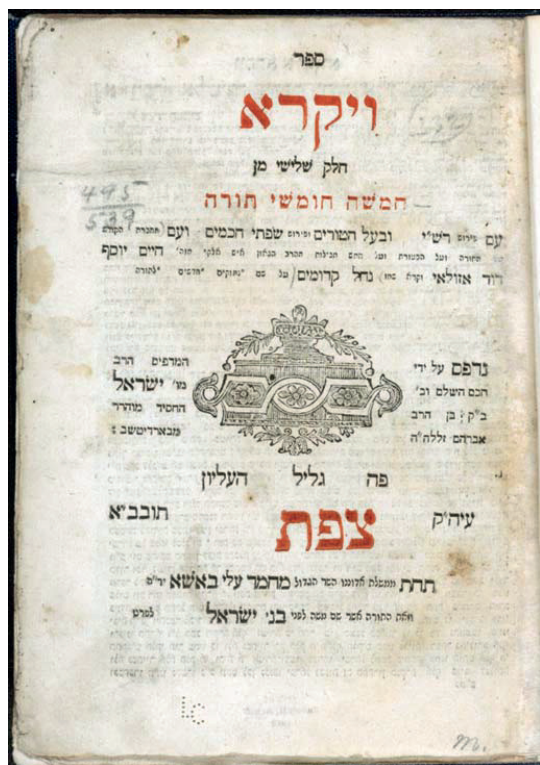 ספר
ויקרא
חלק שלישי מן
חמשה חומשי תורה
עם פירוש רש"י ובעל הטורים ופירוש שפתי חכמים ועם
התורה ועל הרב הגאון איש אלקי חיים יוסף
דוד אזולאי וקרא שמו נחל קדומים (על שם
נדפס על ידי
חכם השלם
ב"ק בן הרב
אברהם זללה"ה
המדפיס הרב
מו' ישראל
החסיד מוהרר
מבארדיטשב :
פה גליל העליון
עיה"ק צפת תובב"א
תחת ממשלת אדוננו השר הגדול מחמד עלי באשא יר"ה
וזאת התורה אשר שם משה לפני בני ישראל לפרט
495
539
LC
m.